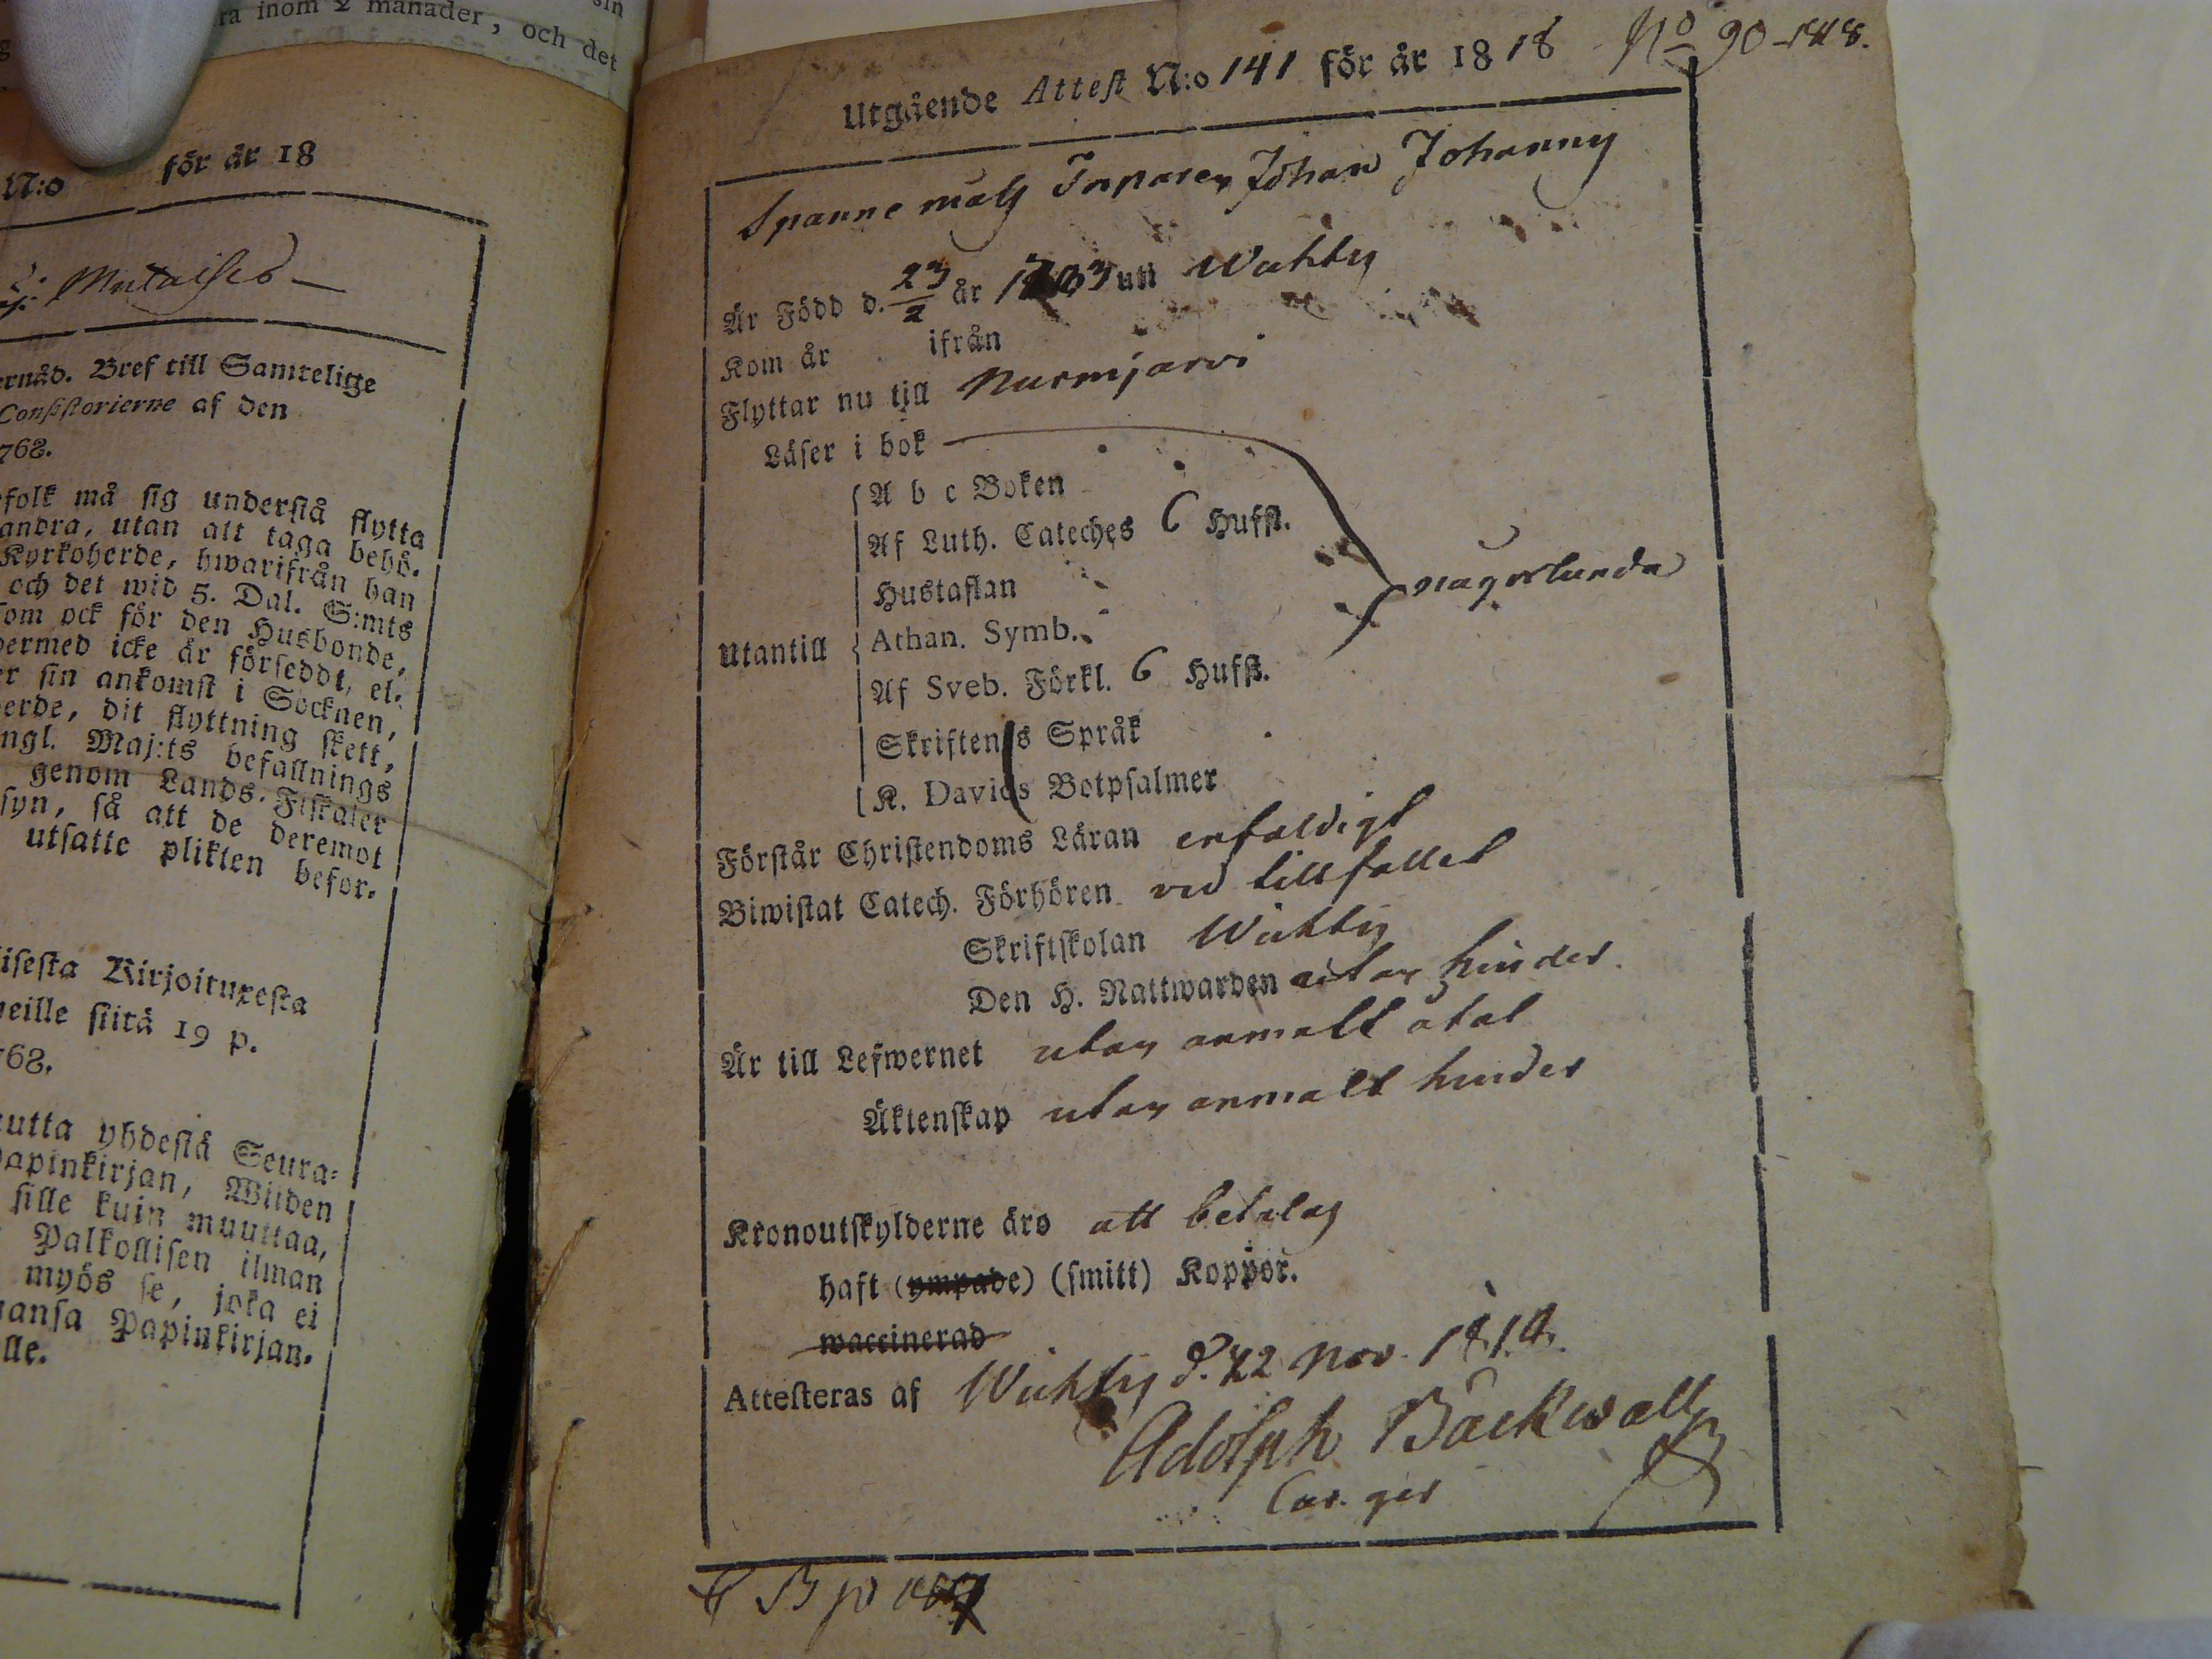 sin
ra inom 2 månader, och det
N:o för år 18
Mutaiseb
ernåd. Bref till Samtelige
Consistorierne af den
768.
folk må sig understå flytta
andra, utan att taga behö-
Kyrkoherde, hwarifrån han
och det wid 5. Dal. S:mts
som ock för den Husbonde,
dermed icke är försedd, el-
er sin ankomst i Socknen,
erde, dit flyttning skett,
ngl. Maj:ts befallnings
genom Lands-Fiskaler
syn, så att de deremot
utsatte plikten befor-
lisesta Kirjoituxesta
eille siitä 19 p.
768.
utta yhdestä Seura-
papinkirjan, Wiiden
sille kuin muuttaa,
Palkollisen ilman
myös se, joka ei
ansa Papinkirjan-
lle.
No 90-1818.
Utgående Attest N:o 141 för år 1818
Spanne målg Johan Johanny
Är Född d. 23/2 år 1783 uti Wichty
Kom år ifrån
Flyttar nu till Nurmjarvi
Läser i bok
A b c Boken
Af Luth. Cateches 6 Hufst.
Hustaflan
någorlunda
Utantill
Athan. Symb.
Af Sveb. Förkl. 6 Hufst.
Skriftens Språk
K. Davids Botpsalmer
Förstår Christendoms Läran enfaldigt
Biwistat Catech. Förhören vid tillfallet
Skriftskolan Wichty
Den H. Nattwarden utan hinder.
Är till Lefwernet utan anmalt åtal
Äktenskap utan anmalt hinder
Kronoutskylderne äro att betalas
haft (ympade) (smitt) Koppor.
waccinerad
Attesteras af Wichty d. 22 Nov. 1818.
Adolph Bäckwall